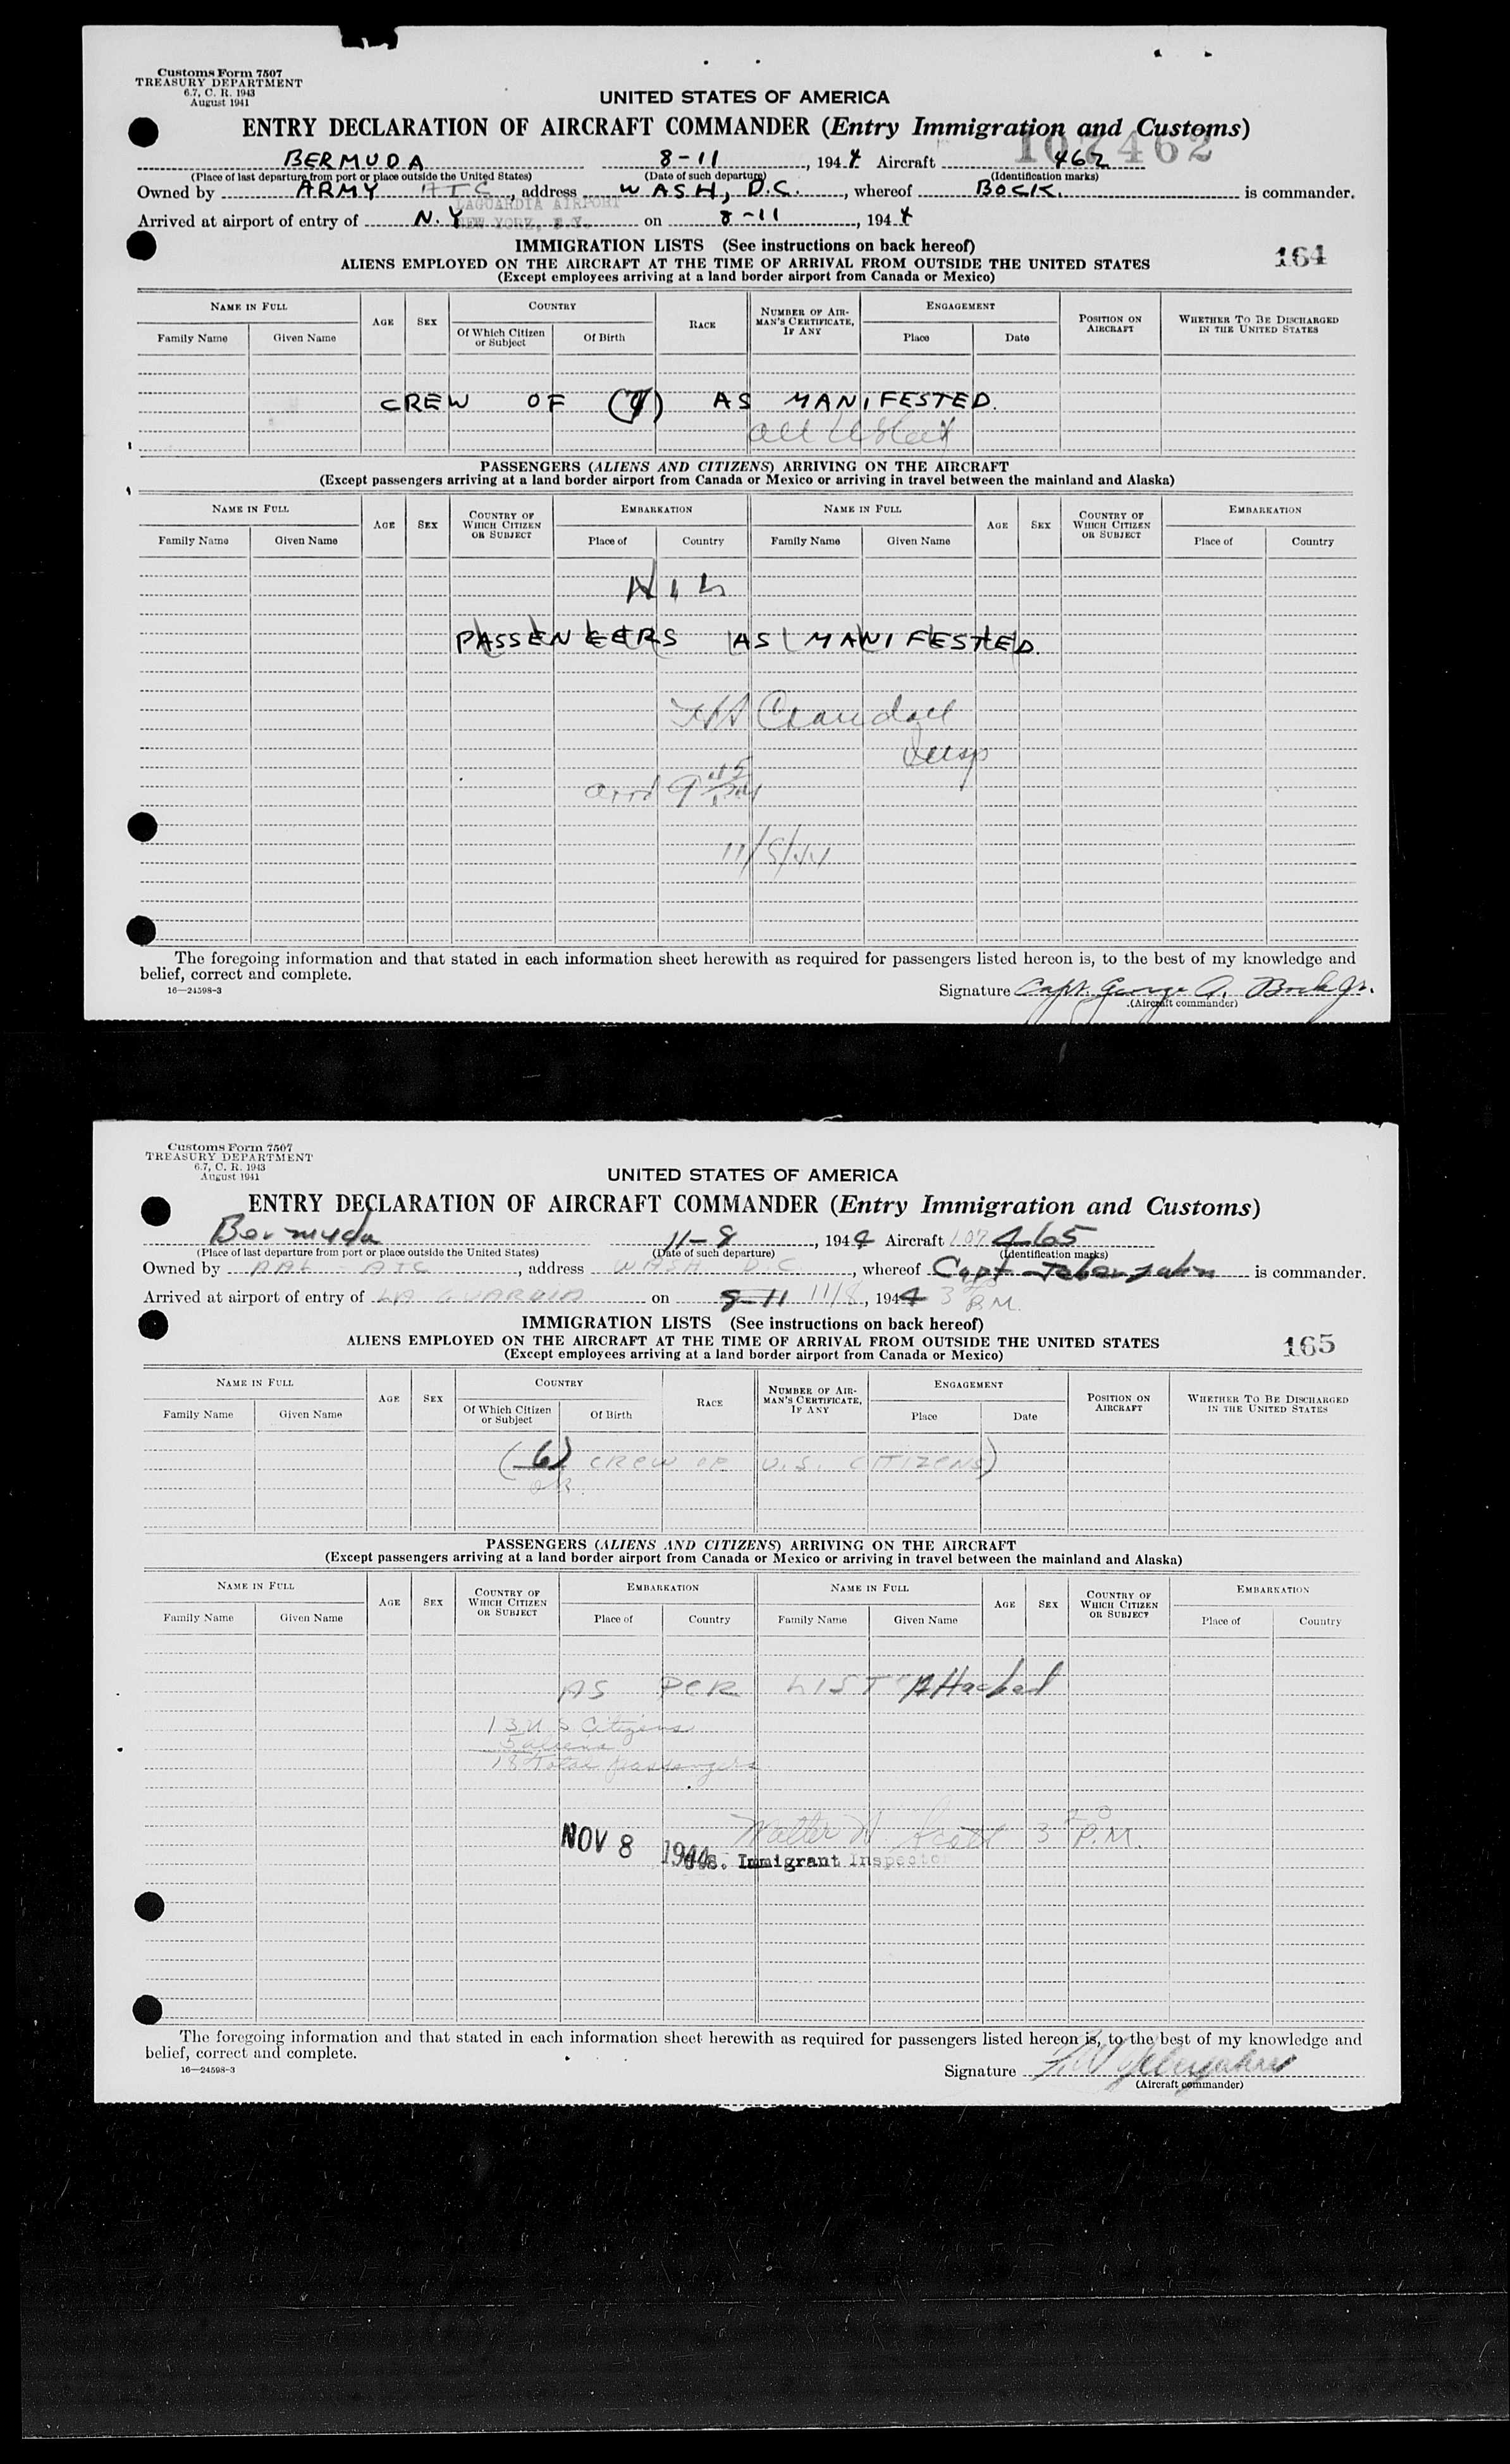 Customs Form 7507
TREASURY DEPARTMENT
6.7, C. R. 1943
August 1941
UNITED STATES OF AMERICA
ENTRY DECLARATION OF AIRCRAFT COMMANDER (Entry Immigration and Customs)
107462
BERMUDA 8-11, 1944 Aircraft 462
(Place of last departure from port or place outside the United States) (Date of such departure) (Identification marks)
Owned by ARMY ATC, address WASH, D.C., whereof BOCK is commander.
LAGUARDIA AIRPORT
NEW YORK, N.Y.
Arrived at airport of entry of N.Y on 8-11, 1944
IMMIGRATION LISTS (See instructions on back hereof)
164
ALIENS EMPLOYED ON THE AIRCRAFT AT THE TIME OF ARRIVAL FROM OUTSIDE THE UNITED STATES
(Except employees arriving at a land border airport from Canada or Mexico)
NAME IN FULL AGE SEX COUNTRY RACE NUMBER OF AIRMAN'S CERTIFICATE, IF ANY ENGAGEMENT POSITION ON AIRCRAFT WHETHER TO BE DISCHARGED IN THE UNITED STATES
Family Name Given Name Of Which Citizen or Subject Of Birth Place Date
CREW OF AS MANIFESTED.
PASSENGERS (ALIENS AND CITIZENS) ARRIVING ON THE AIRCRAFT
(Except passengers arriving at a land border airport from Canada or Mexico or arriving in travel between the mainland and Alaska)
NAME IN FULL AGE SEX COUNTRY OF WHICH CITIZEN OR SUBJECT EMBARKATION NAME IN FULL AGE SEX COUNTRY OF WHICH CITIZEN OR SUBJECT EMBARKATION
Family Name Given Name Place of Country Family Name Given Name Place of Country
NIL
PASSENGERS AS MANIFESTED.
Crandall
Insp
arrd 9 45
11/8/44
The foregoing information and that stated in each information sheet herewith as required for passengers listed hereon is, to the best of my knowledge and
belief, correct and complete.
16—24598-3
Signature Capt. George A. Bock Jr.
(Aircraft commander)
Customs Form 7507
TREASURY DEPARTMENT
6.7, C. R. 1943
August 1941
UNITED STATES OF AMERICA
ENTRY DECLARATION OF AIRCRAFT COMMANDER (Entry Immigration and Customs)
Bermuda 11-8, 1944 Aircraft 107465
(Place of last departure from port or place outside the United States) (Date of such departure) (Identification marks)
Owned by AAL - ATC, address WASH D.C, whereof Capt is commander.
Arrived at airport of entry of LA GUARDIA on 8-11 11/8, 1944 3 P.M.
IMMIGRATION LISTS (See instructions on back hereof)
165
ALIENS EMPLOYED ON THE AIRCRAFT AT THE TIME OF ARRIVAL FROM OUTSIDE THE UNITED STATES
(Except employees arriving at a land border airport from Canada or Mexico)
NAME IN FULL AGE SEX COUNTRY RACE NUMBER OF AIRMAN'S CERTIFICATE, IF ANY ENGAGEMENT POSITION ON AIRCRAFT WHETHER TO BE DISCHARGED IN THE UNITED STATES
Family Name Given Name Of Which Citizen or Subject Of Birth Place Date
(6) CREW OF U.S. CITIZENS)
OK
PASSENGERS (ALIENS AND CITIZENS) ARRIVING ON THE AIRCRAFT
(Except passengers arriving at a land border airport from Canada or Mexico or arriving in travel between the mainland and Alaska)
NAME IN FULL AGE SEX COUNTRY OF WHICH CITIZEN OR SUBJECT EMBARKATION NAME IN FULL AGE SEX COUNTRY OF WHICH CITIZEN OR SUBJECT EMBARKATION
Family Name Given Name Place of Country Family Name Given Name Place of Country
AS PER LIST Attached
13 U S Citizens
5 aliens
18 Total passengers
Walter W. Scott 3 20 P.M.
NOV 8 1944
U.S. Immigrant Inspector
The foregoing information and that stated in each information sheet herewith as required for passengers listed hereon is, to the best of my knowledge and
belief, correct and complete.
16—24598-3
Signature
(Aircraft commander)